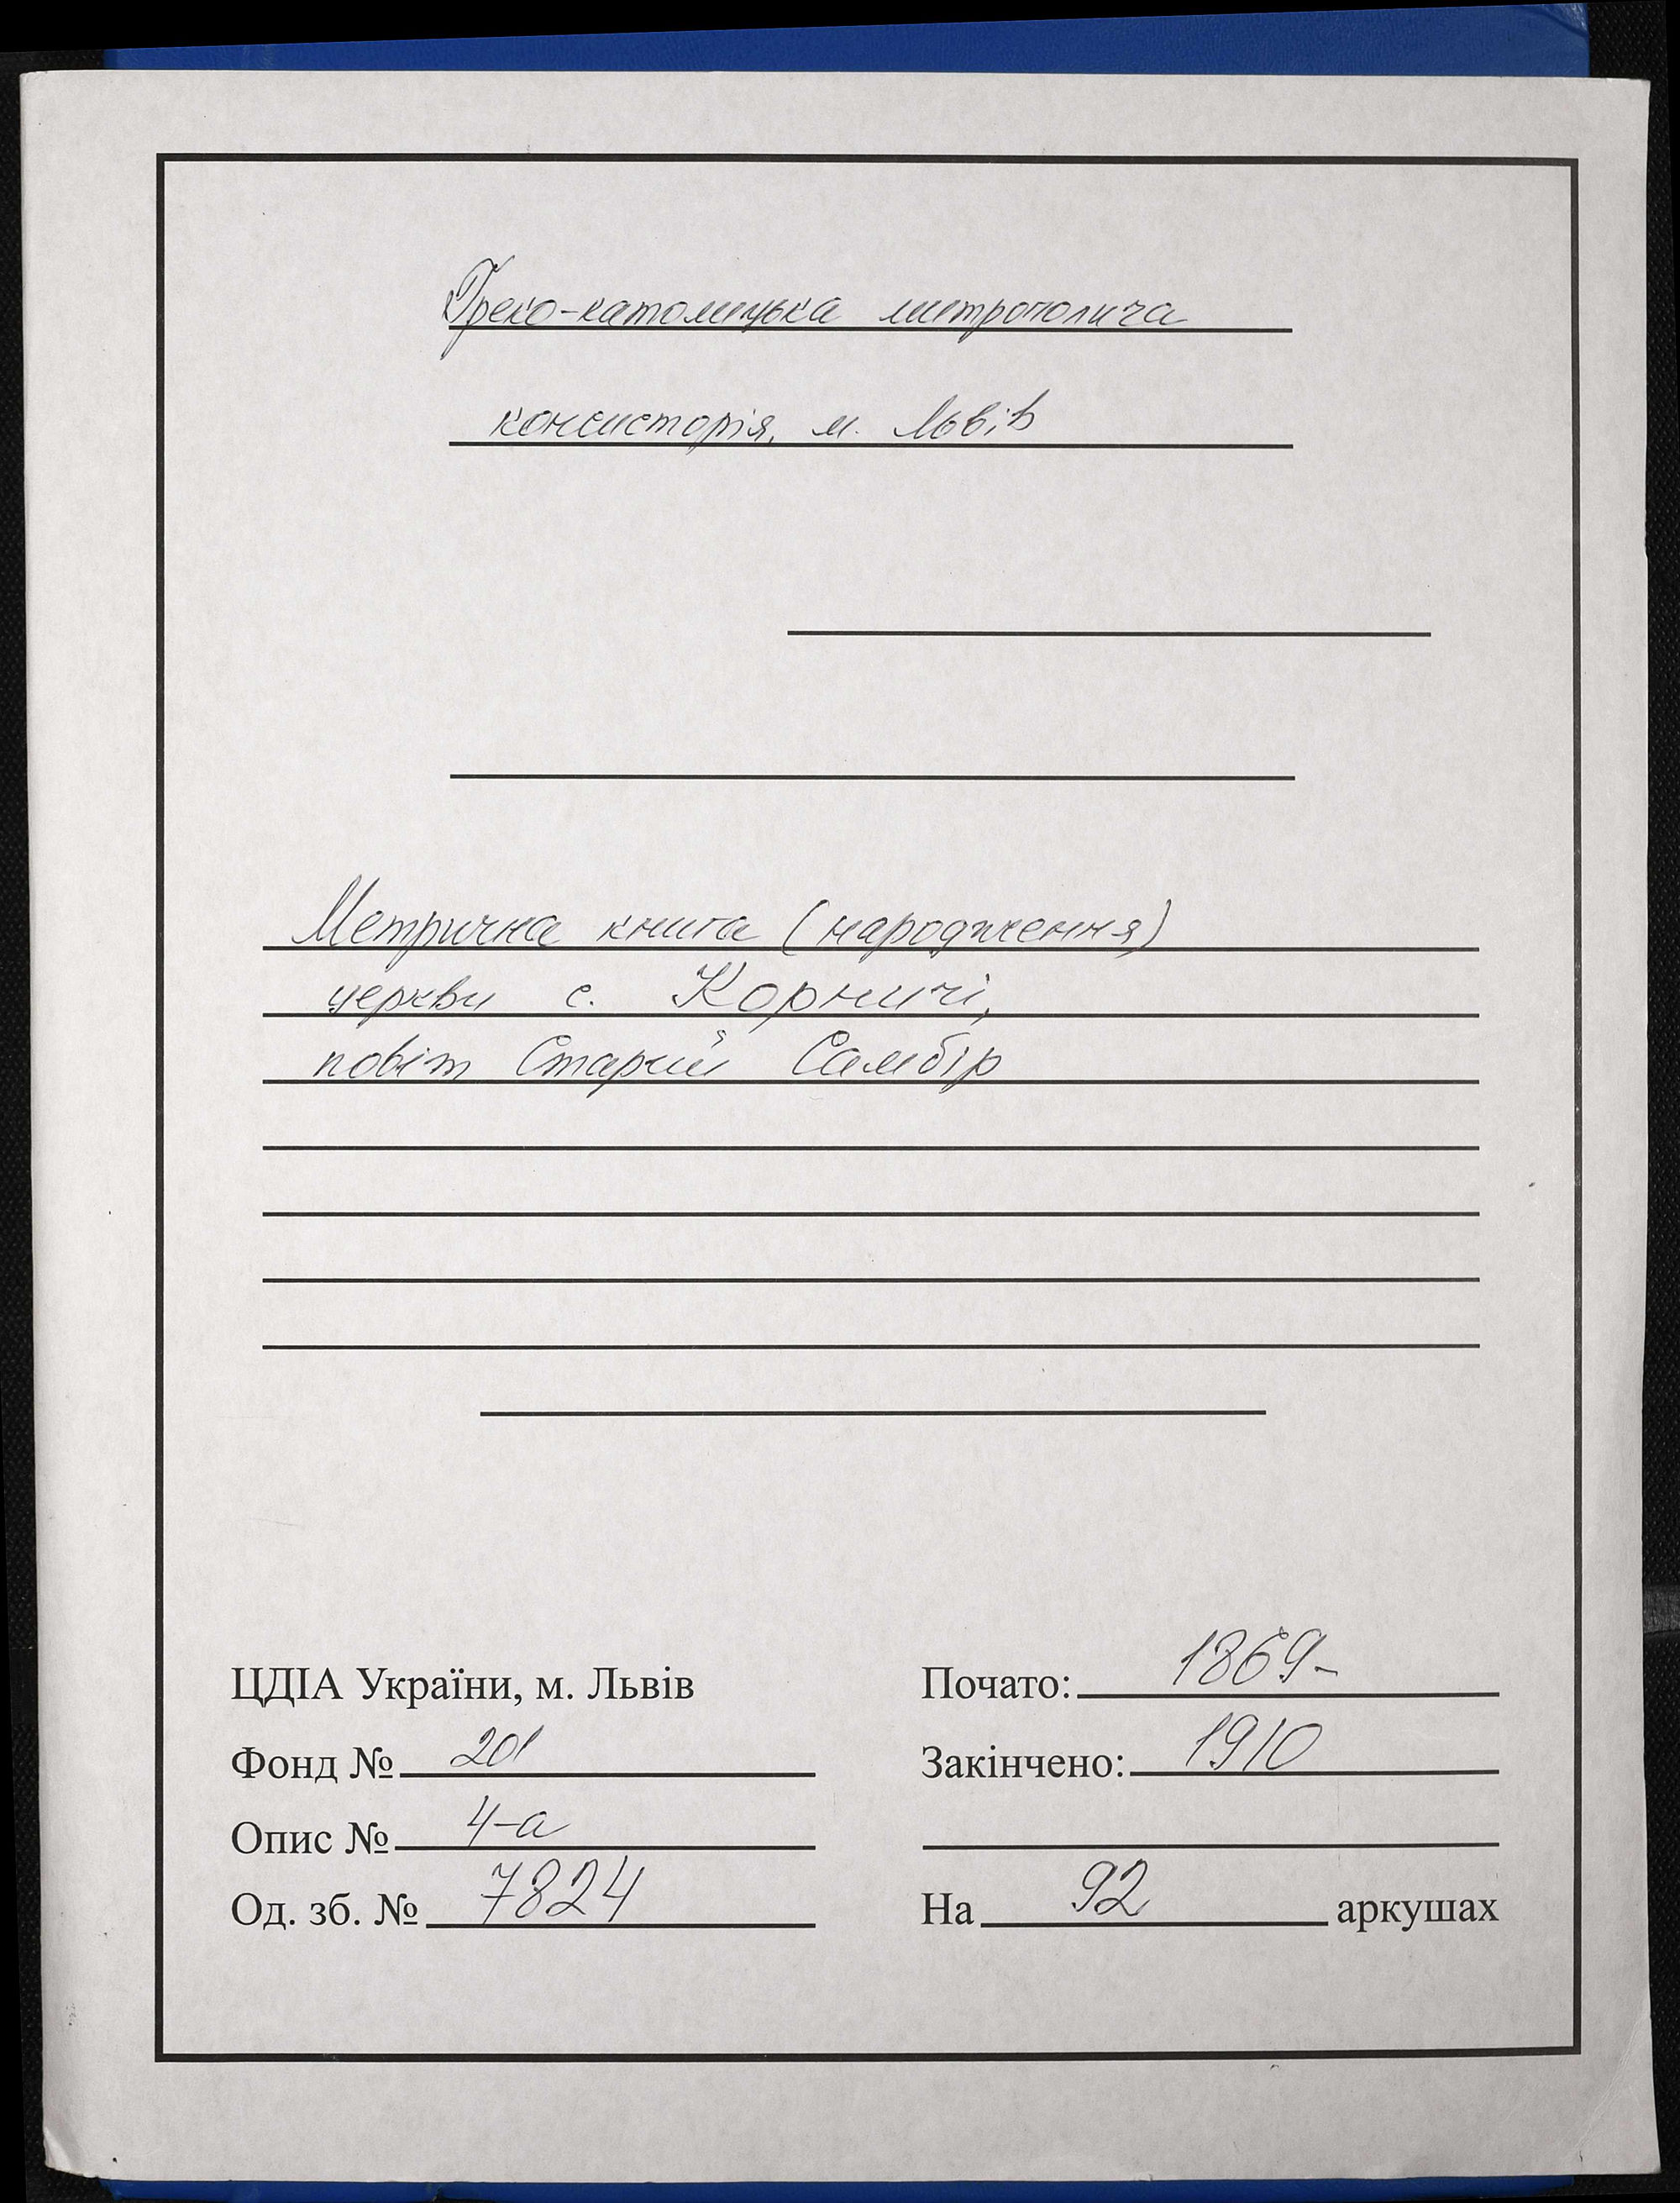 Греко-католицька митрополича
консисторія, м. Львів
Метрична книга (народження)
церкви с. Корничі,
повіт Старий Самбір
ЦДІА України, м. Львів
Почато: 1869-
Фонд № 201
Закінчено: 1910
Опис № 4-а
Од. зб. № 7824
На 92 аркушах